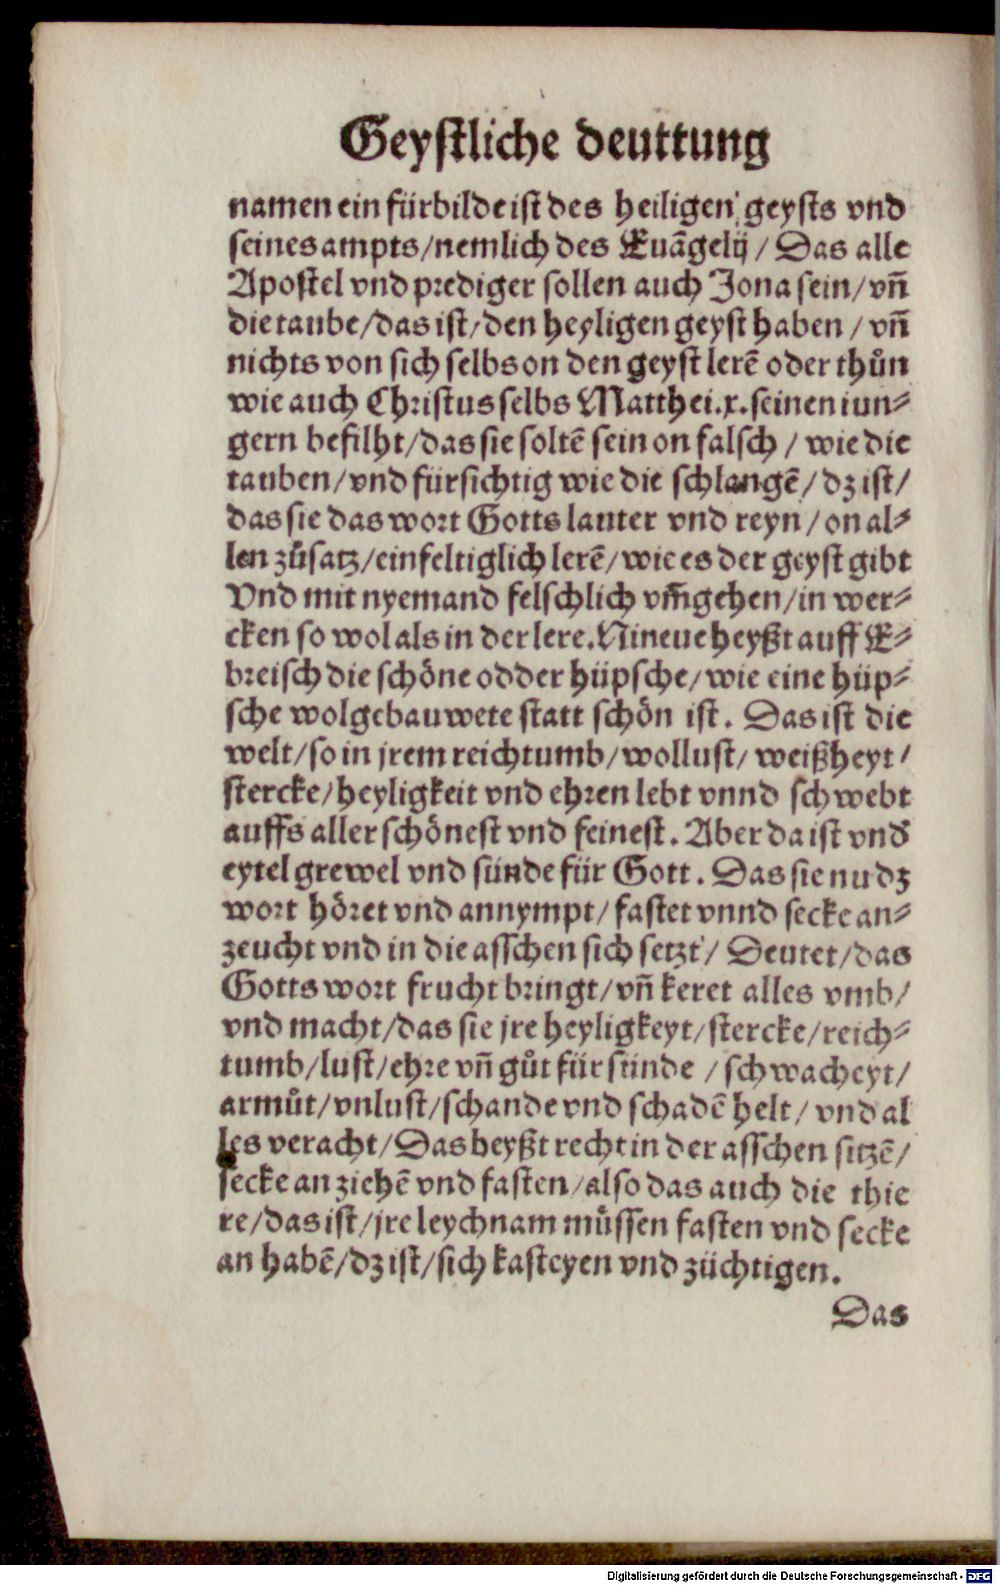 Geystliche deuttung
namen ein fürbilde ist des heiligen geysts vnd
seines ampts/nemlich des Euāgelij/ Das alle
Apostel vnd prediger sollen auch Jona sein/ vn̄
die taube/das ist/den heyligen geyst haben/ vn̄
nichts von sich selbs on den geyst lerē oder thůn
wie auch Christus selbs Matthei.x. seinen iun⸗
gern befilht/das sie soltē sein on falsch/ wie die
tauben/vnd fürsichtig wie die schlangē/dz ist/
das sie das wort Gotts lauter vnd reyn/on al⸗
len zůsatz/einfeltiglich lerē/wie es der geyst gibt
Vnd mit nyemand felschlich vm̄gehen/in wer⸗
cken so wol als in der lere. Nineue heyßt auff E⸗
breisch die schöne odder hüpsche/wie eine hüp⸗
sche wolgebauwete statt schön ist. Das ist die
welt/so in jrem reichtumb/wollust/weißheyt/
stercke/heyligkeit vnd ehren lebt vnnd schwebt
auffs aller schönest vnd feinest. Aber da ist vnd
eytel grewel vnd sünde für Gott. Das sie nu dz
wort höret vnd annympt/fastet vnnd secke an⸗
zeucht vnd in die asschen sich setzt/ Deutet/das
Gotts wort frucht bringt/vn̄ keret alles vmb/
vnd macht/das sie jre heyligkeyt/stercke/reich⸗
tumb/lust/ehre vn̄ gůt für sünde/schwacheyt/
armůt/vnlust/schande vnd schadē helt/ vnd al
les veracht/Das heyßt recht in der asschen sitzē/
secke an ziehē vnd fasten/also das auch die thie
re/das ist/jre leychnam müssen fasten vnd secke
an habē/dz ist/sich kasteyen vnd züchtigen.
Das
Digitalisierung gefördert durch die Deutsche Forschungsgemeinschaft - DFG